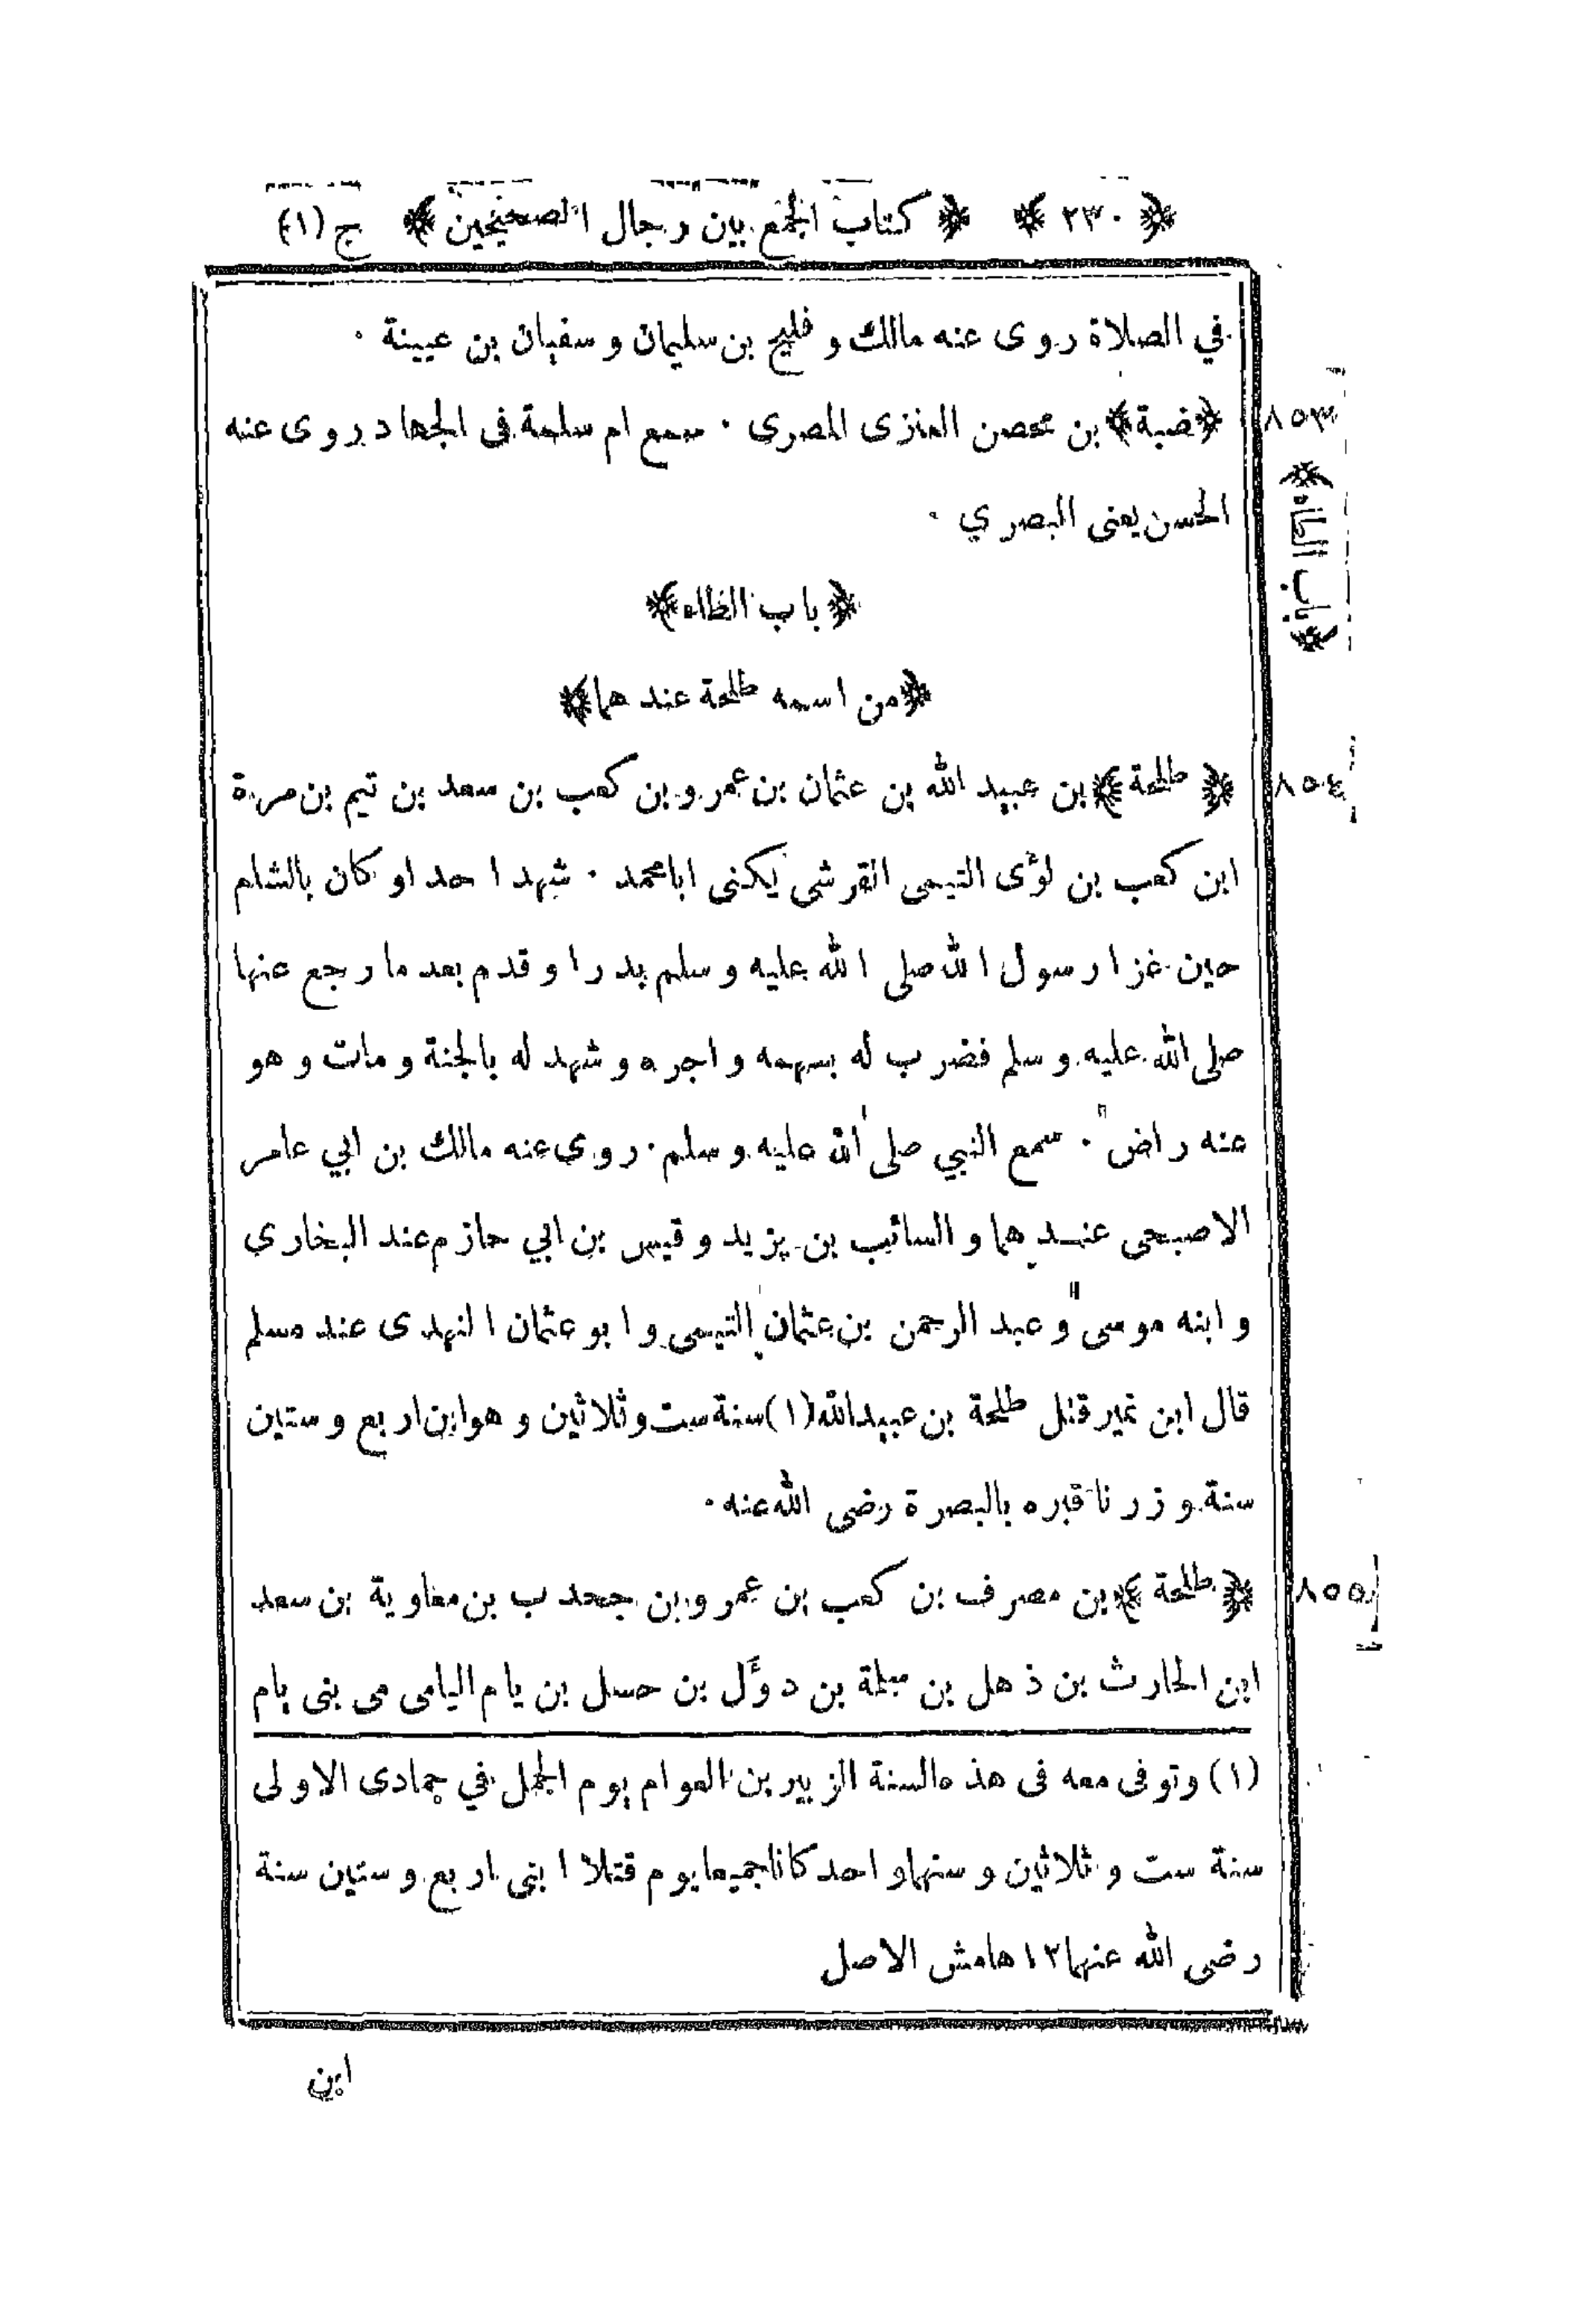 ﴿٢٣٠﴾ ﴿كتاب الجمع بين رجال الصحيحين﴾ ج (١)
في الصلاة روى عنه مالك و فليح بن سليمان و سفيان بن عيينة ٠
٨٥٣ ﴿ضبة﴾ بن محصن العنزى المصرى ٠ سمع ام سلمة فى الجهاد روى عنه
الحسن يعنى البصري ٠
﴿باب الطاء﴾
﴿باب الظاء﴾
﴿من اسمه طلحة عند هما﴾
٨٥٤ ﴿طلحة﴾ بن عبيد الله بن عثمان بن عمرو بن كعب بن سعد بن تيم بن مرة
ابن كعب بن لؤى التيمى القرشى يكنى ابا محمد ٠ شهد احدا و كان بالشام
حين غزا رسول الله صلى الله عليه و سلم بدرا و قدم بعد ما رجع عنها
صلى الله عليه و سلم فضرب له بسهمه و اجره و شهد له بالجنة و مات و هو
عنه راض ٠ سمع النبي صلى الله عليه و سلم ٠ روى عنه مالك بن ابي عامر
الاصبحى عند هما و السائب بن يزيد و قيس بن ابي حازم عند البخاري
و ابنه موسى و عبد الرحمن بن عثمان التيمى و ابو عثمان النهدى عند مسلم
قال ابن نمير قتل طلحة بن عبيد الله (١) سنة ست و ثلاثين و هو ابن اربع و ستين
سنة و زرنا قبره بالبصرة رضى الله عنه ٠
٨٥٥ ﴿طلحة﴾ بن مصرف بن كعب بن عمرو بن جحدب بن معاوية بن سعد
ابن الحارث بن ذهل بن سلمة بن دؤل بن حسل بن يام اليامى من بنى يام
(١) و توفى معه فى هذه السنة الزبير بن العوام يوم الجمل في جمادى الاولى
سنة ست و ثلاثين و سنهما واحد كانا جميعا يوم قتلا ابنى اربع و ستين سنة
رضى الله عنهما ١٢ هامش الاصل
ابن